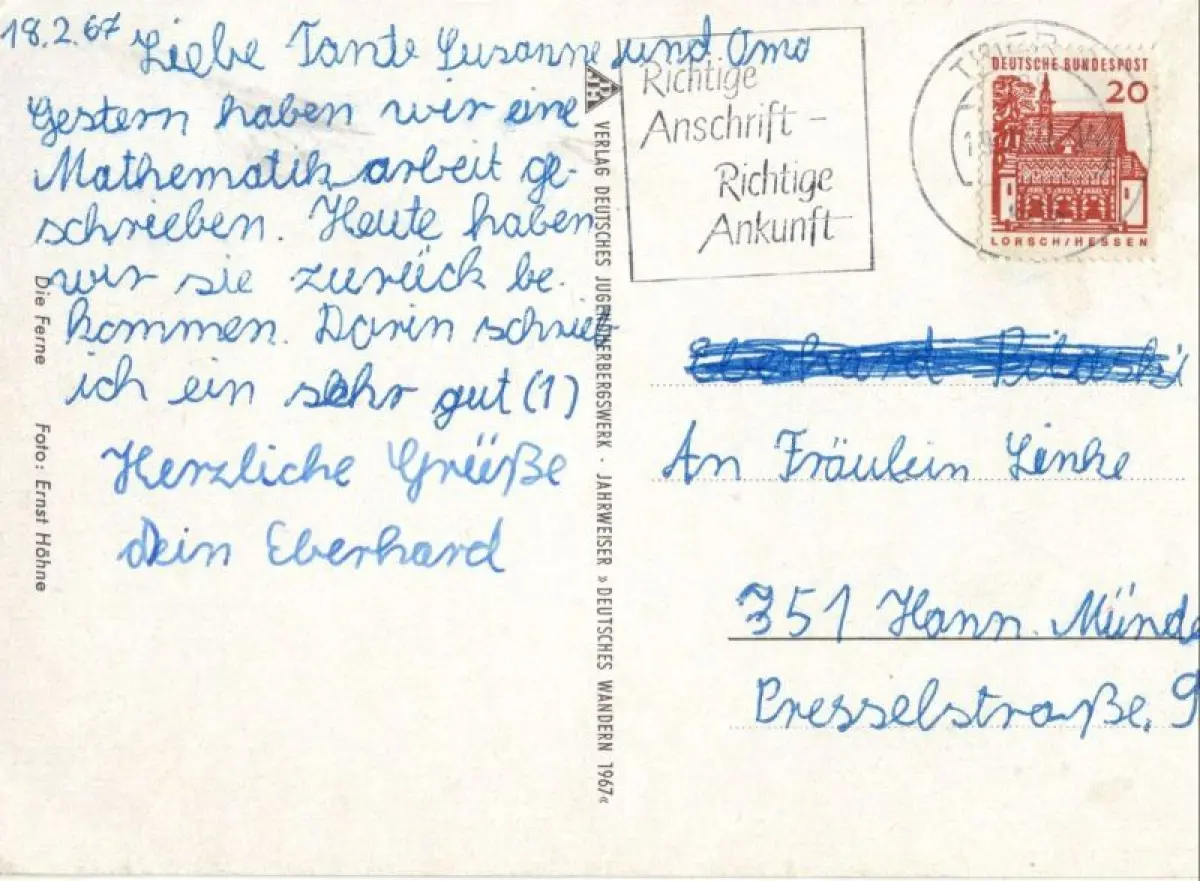 18.2.67 Liebe Tante Susanne und Oma
Gestern haben wir eine
Mathematikarbeit ge-
schrieben. Heute haben
wir sie zurück be-
kommen. Darin schrieb
ich ein sehr gut (1)
Herzliche Grüße
Dein Eberhard
Die Ferne Foto: Ernst Höhne
VERLAG DEUTSCHES JUGENDHERBERGSWERK · JAHRWEISER »DEUTSCHES WANDERN 1967«
Richtige
Anschrift -
Richtige
Ankunft
TRIER
DEUTSCHE BUNDESPOST
20
LORSCH/HESSEN
Eberhard
An Fräulein Linke
351 Hann. Münde
Presselstraße. 9